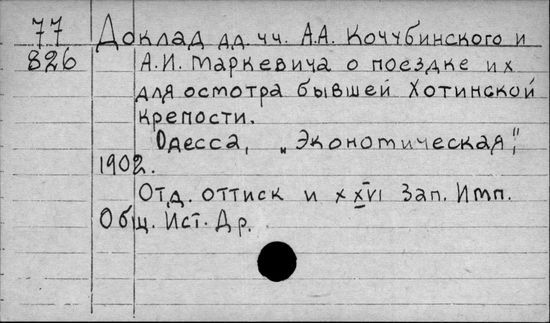 77 Доклад дд. чч. А.А. Кочубинского и
826 А.И. Маркевича о поездке их
для осмотра бывшей Хотинской
крепости.
Одесса, „Экономическая",
1902.
Отд. оттиск и XXVI Зап. Имп.
Общ. Ист. Др.